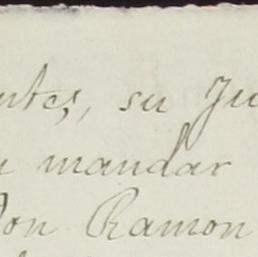 ntes, su Ju
mandar
Don Ramon